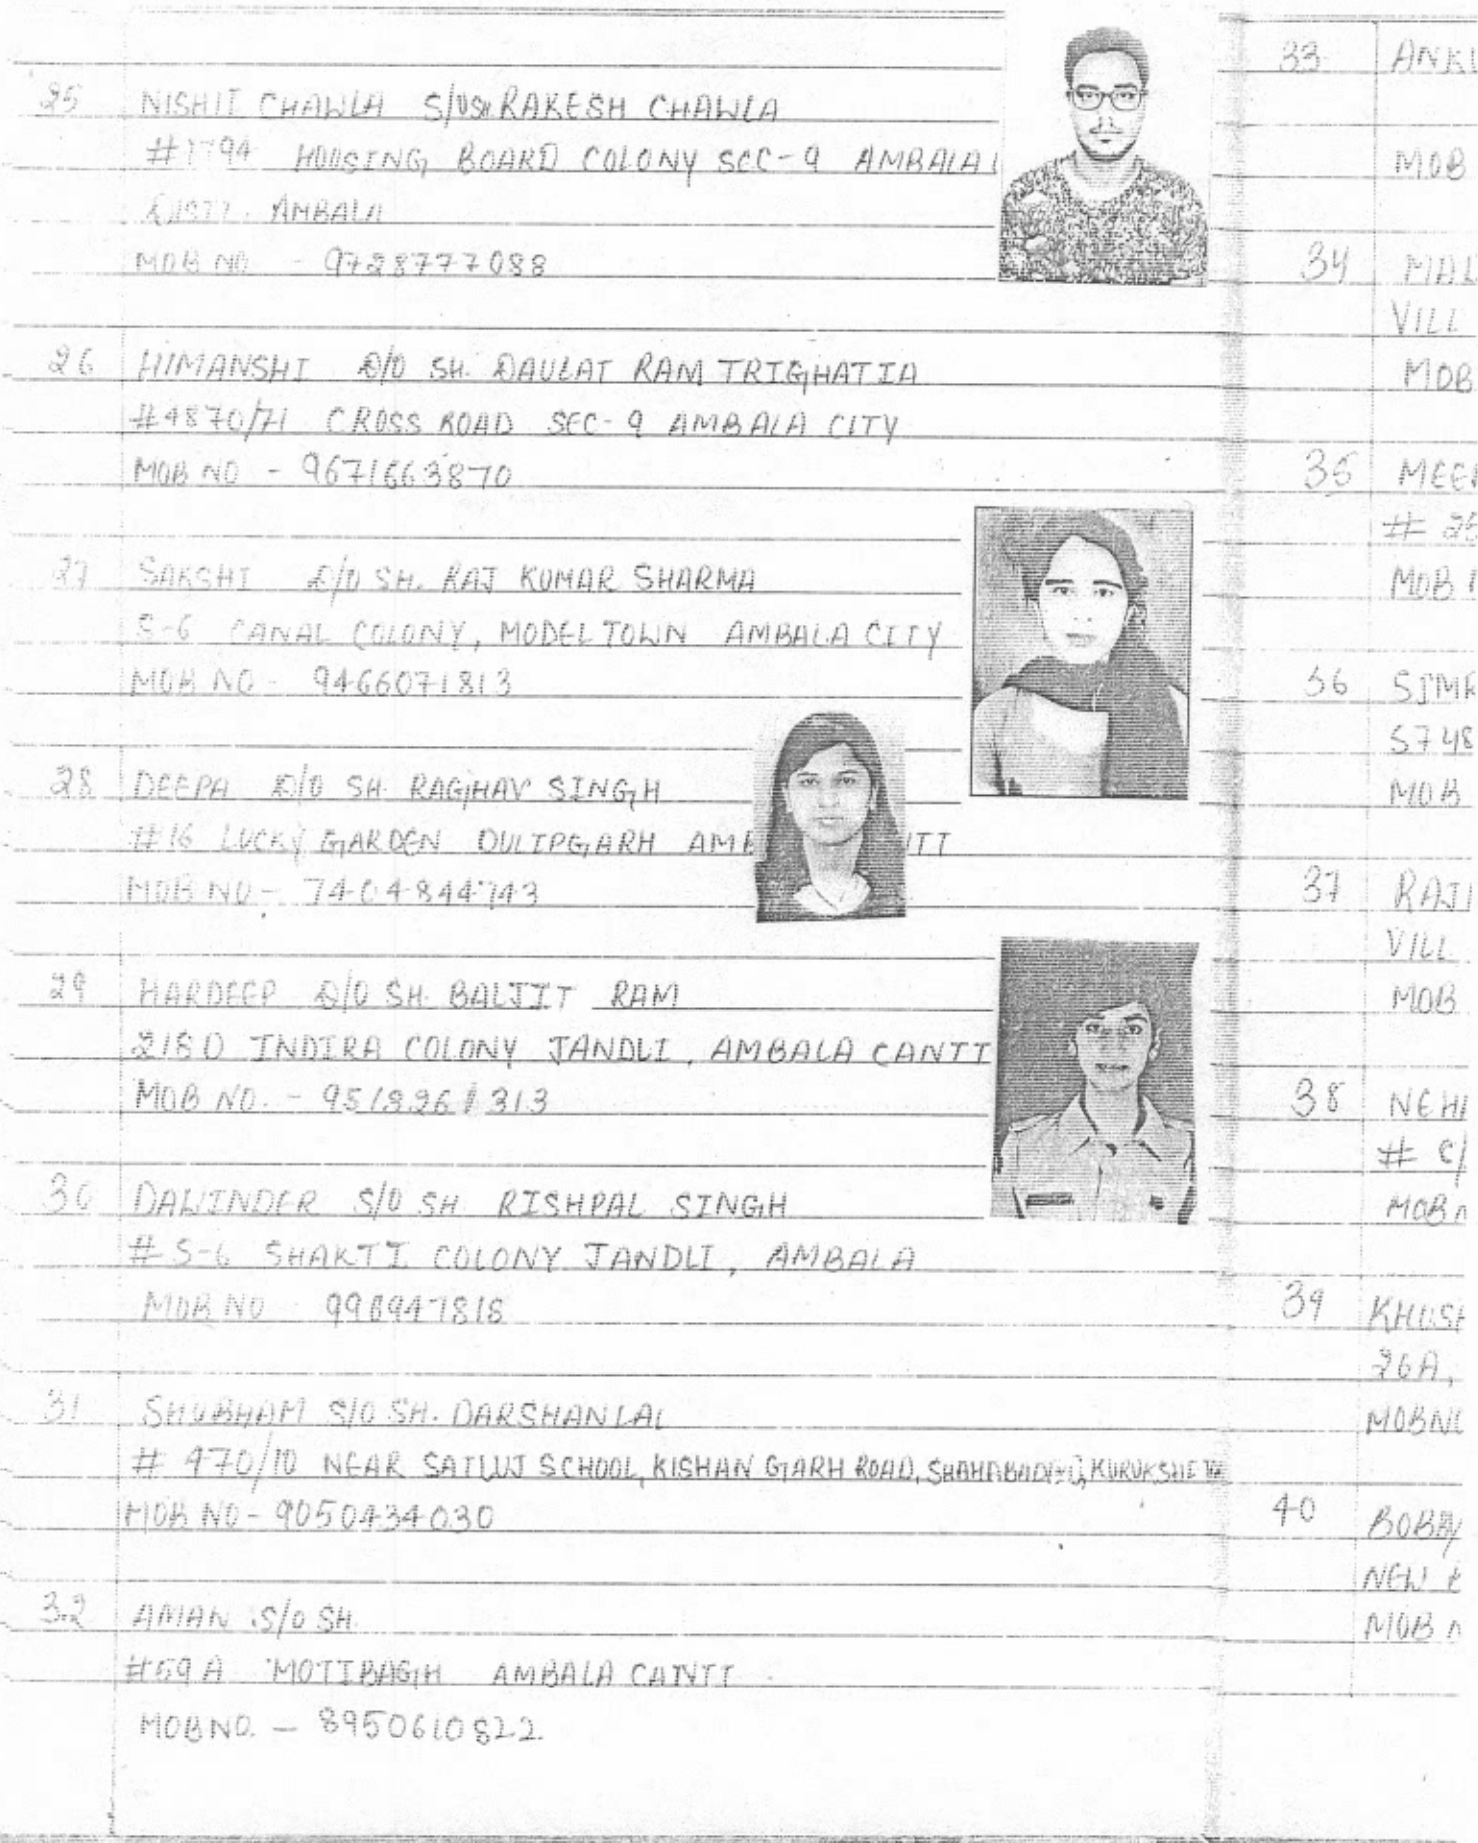 25 NISHIT CHAWLA S/O SH. RAKESH CHAWLA
#1794 HOUSING BOARD COLONY SEC-9 AMBALA
DISTT. AMBALA
MOB NO - 9728777088
26 HIMANSHI D/O SH. DAULAT RAM TRIGHATIA
#4870/71 CROSS ROAD SEC-9 AMBALA CITY
MOB NO - 9671663870
27 SAKSHI D/O SH. RAJ KUMAR SHARMA
S-6 CANAL COLONY, MODEL TOWN AMBALA CITY
MOB NO - 9466071813
28 DEEPA D/O SH. RAGHAV SINGH
#16 LUCKY GARDEN DULIPGARH
MOB NO - 7404844743
29 HARDEEP D/O SH. BALJIT RAM
218 D INDIRA COLONY JANDLI, AMBALA CANTT
MOB NO. -
30 DAWINDER S/O SH. RISHPAL SINGH
# S-6 SHAKTI COLONY JANDLI, AMBALA
MOB NO
31 SHUBHAM S/O SH. DARSHAN LAL
# 470/10 NEAR SATLUJ SCHOOL, KISHAN GARH ROAD, SHAHABAD KURUKSHETRA
MOB NO - 9050434030
32 AMAN S/O SH.
#59 A MOTIBAGH AMBALA CANTT
MOB NO. - 8950610822
33
MOB
34
VILL
MOB
35
# 25
MOB
36
5748
MOB
37
VILL
MOB
38
# C/
MOB
39
26A,
MOB NO
40 BOBBY
NEW
MOB